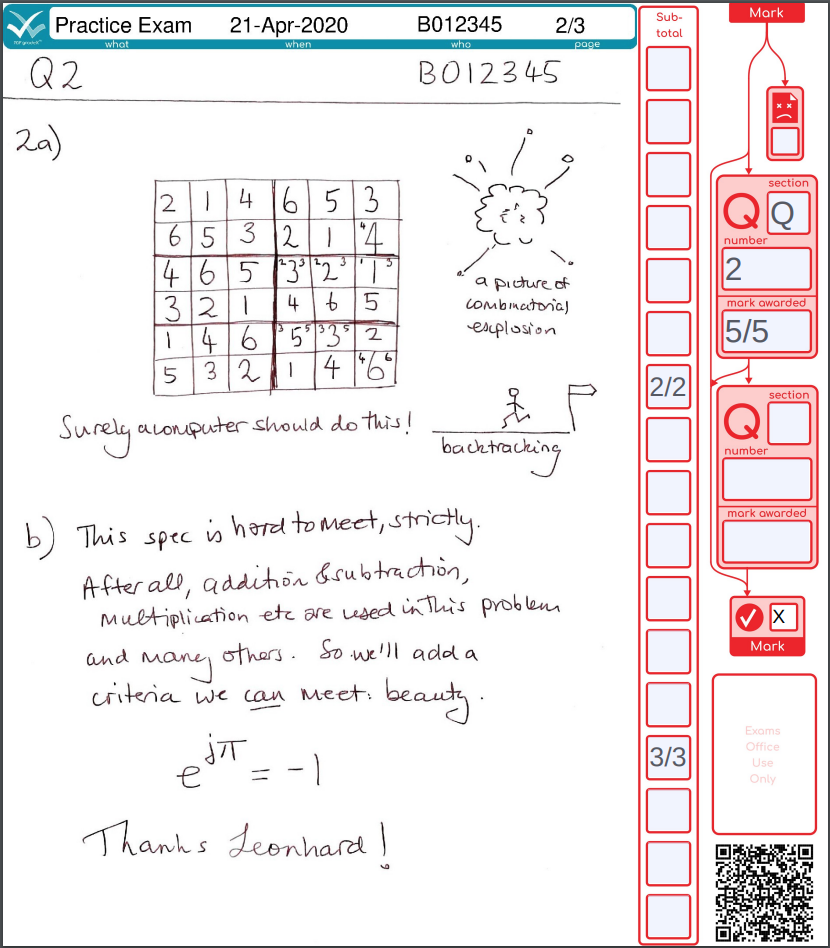 Practice Exam 21-Apr-2020 B012345 2/3
what when who page
Q2 B012345
2a)
2 1 4 6 5 3
6 5 3 2 1 4 4
4 6 5 2 3 3 2 2 3 1 1 3
3 2 1 4 6 5
1 4 6 3 5 5 3 3 5 2
5 3 2 1 4 4 6 6
a picture of
combinatorial
explosion
Surely a computer should do this!
backtracking
b) This spec is hard to meet, strictly.
After all, addition & subtraction,
multiplication etc are used in this problem
and many others. So we'll add a
criteria we can meet: beauty.
e^jπ = -1
Thanks Leonhard!
Sub-
total
2/2
3/3
Mark
section
Q Q
number
2
mark awarded
5/5
section
Q
number
mark awarded
X
Mark
Exams
Office
Use
Only